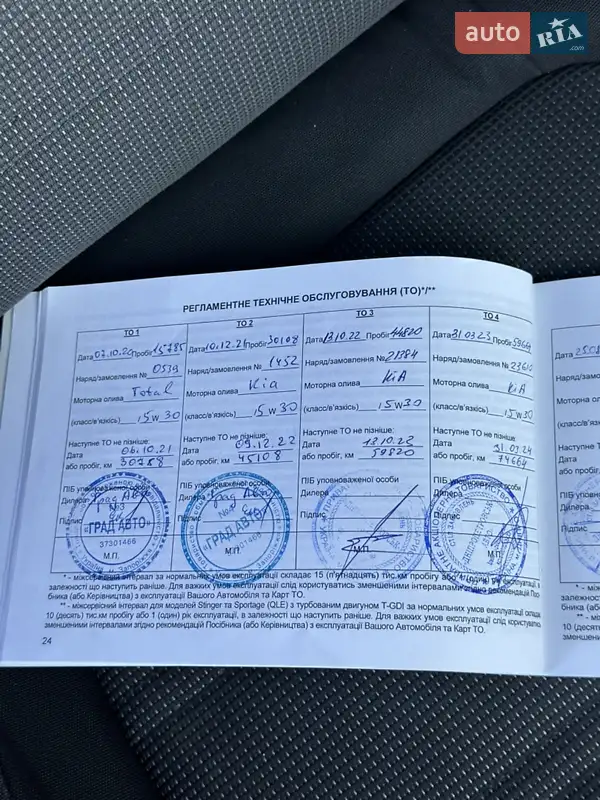 auto RIA .com
РЕГЛАМЕНТНЕ ТЕХНІЧНЕ ОБСЛУГОВУВАННЯ (ТО)*/**
ТО 1
Дата 07.10.20 Пробіг 15785
Наряд/замовлення № 0539
Моторна олива Total
(класс/в'язкість) 5w30
Наступне ТО не пізніше:
Дата 06.10.21
або пробіг, км 30788
ПІБ уповноваженої особи
Дилера Град Авто
№3
Підпис
"ГРАД АВТО"
37301466
М.П.
ТО 2
Дата 10.12.21 Пробіг 30108
Наряд/замовлення № 1452
Моторна олива Kia
(класс/в'язкість) 5w30
Наступне ТО не пізніше:
Дата 09.12.22
або пробіг, км 45108
ПІБ уповноваженої особи
Дилера Град Авто
Підпис
"ГРАД АВТО"
37301466
М.П.
ТО 3
Дата 13.10.22 Пробіг 44820
Наряд/замовлення № 21384
Моторна олива KiA
(класс/в'язкість) 5w30
Наступне ТО не пізніше:
Дата 13.10.23
або пробіг, км 59820
ПІБ уповноваженої особи
Дилера
Підпис
М.П.
ТО 4
Дата 31.03.23 Пробіг 59664
Наряд/замовлення № 23610
Моторна олива KiA
(класс/в'язкість) 5w30
Наступне ТО не пізніше:
Дата 31.03.24
або пробіг, км 74664
ПІБ уповноваженої особи
Дилера
Підпис
М.П.
* - міжсервісний інтервал за нормальних умов експлуатації складає 15 (п'ятнадцять) тис.км пробігу або 1 (один) рік експлуатації, в
залежності що наступить раніше. Для важких умов експлуатації слід користуватись зменшеними інтервалами згідно рекомендацій Посі-
бника (або Керівництва) з експлуатації Вашого Автомобіля та Карт ТО.
** - міжсервісний інтервал для моделей Stinger та Sportage (QLE) з турбованим двигуном T-GDI за нормальних умов експлуатації склада
10 (десять) тис.км пробігу або 1 (один) рік експлуатації, в залежності що наступить раніше. Для важких умов експлуатації слід користуватись
зменшеними інтервалами згідно рекомендацій Посібника (або Керівництва) з експлуатації Вашого Автомобіля та Карт ТО.
24
Дата
Наряд/за
Моторна
(класс/в'
Наступн
Дата
або про
ПІБ упо
Дилера
Підпис
* - між
залежно
бника (а
** - мі
10 (деся
зменше